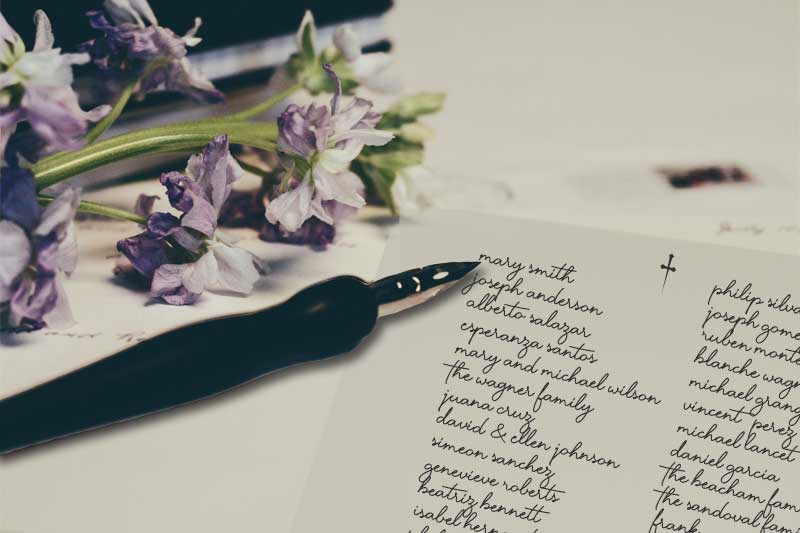 mary smith
joseph anderson
alberto salazar
esperanza santos
mary and michael wilson
the wagner family
juana cruz
david & ellen johnson
simeon sanchez
genevieve roberts
beatriz bennett
isabel
philip
joseph
ruben
blanche
michael
vincent perez
michael lancet
daniel garcia
the beacham
the sandoval